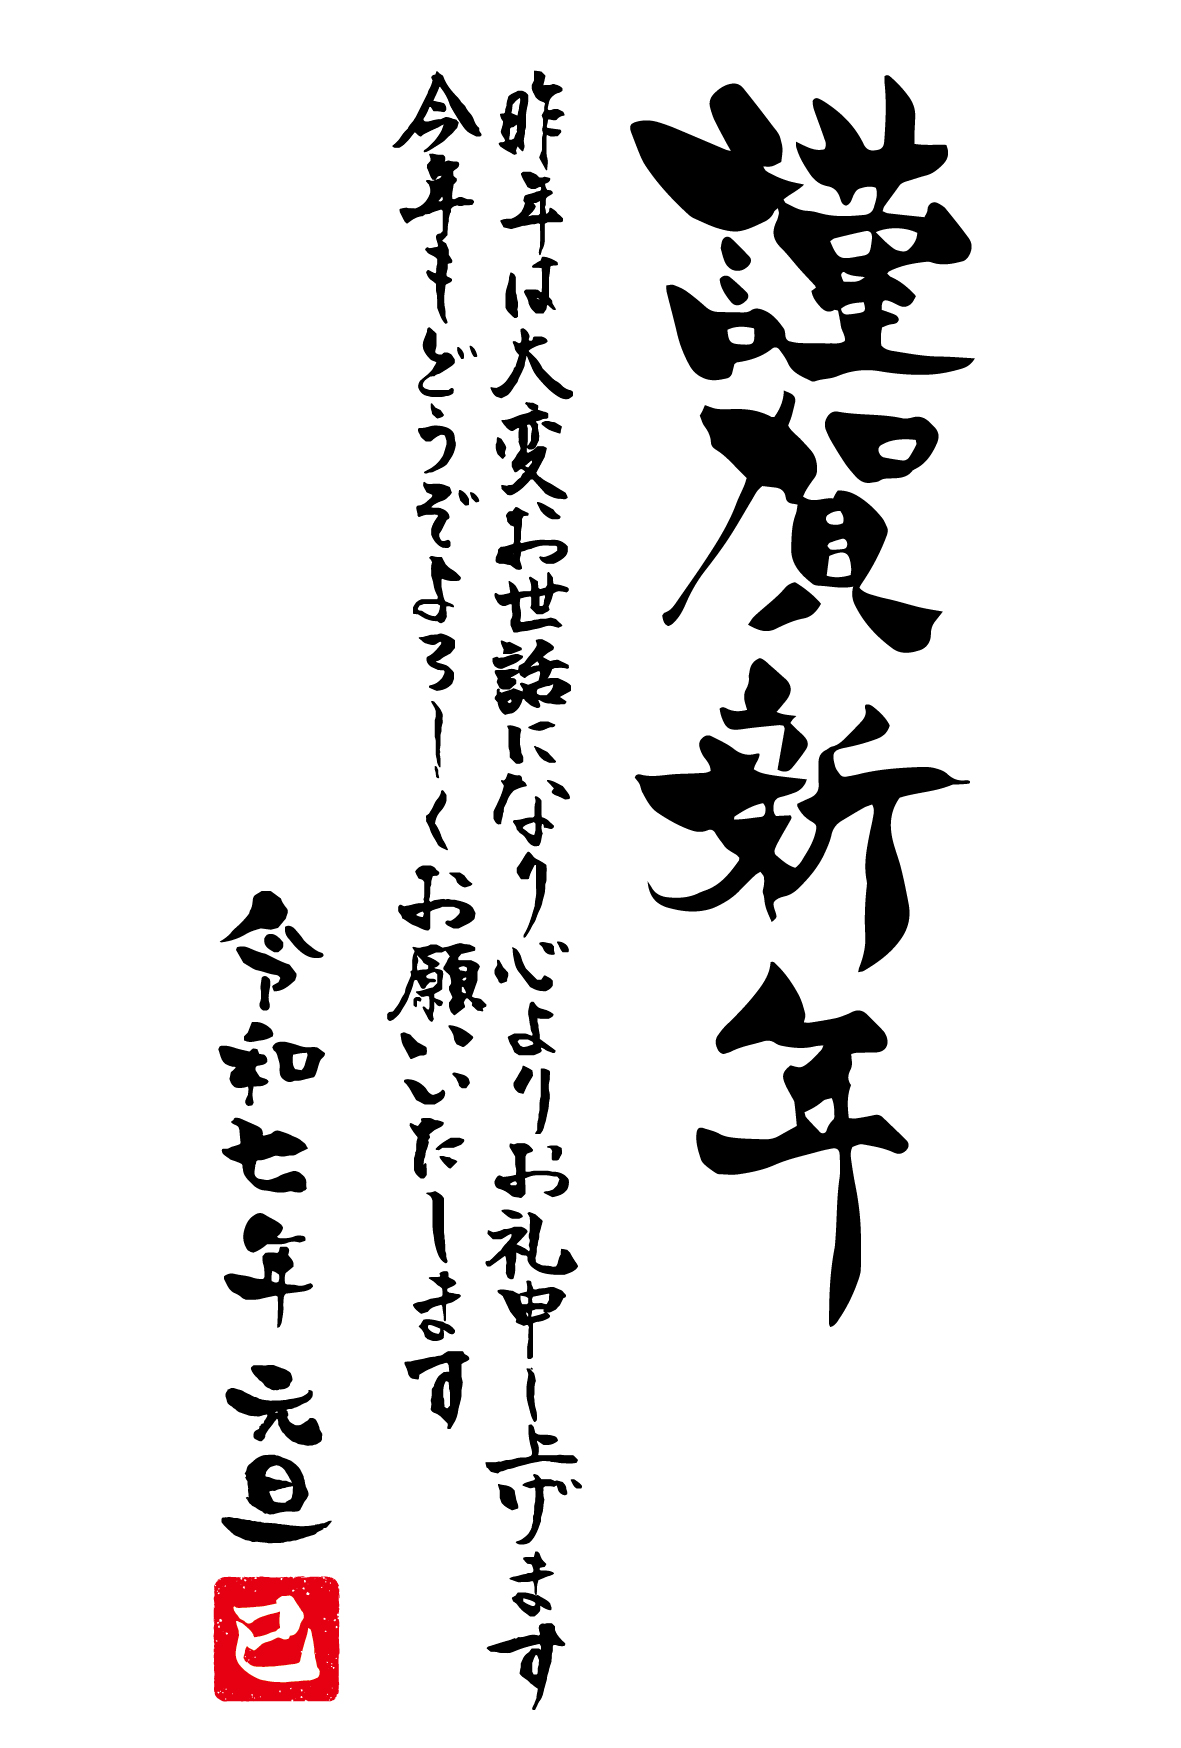 謹賀新年
昨年は大変お世話になり心よりお礼申し上げます
今年もどうぞよろしくお願いいたします
令和七年 元旦
巳